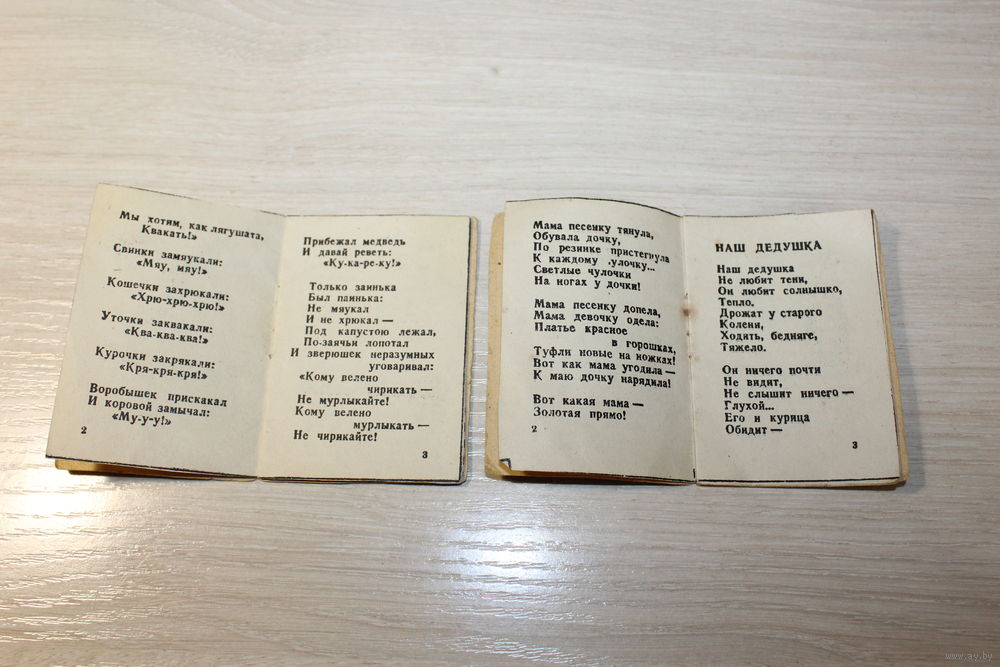 Мы хотим, как лягушата,
Квакать!»
Свинки замяукали:
«Мяу, мяу!»
Кошечки захрюкали:
«Хрю-хрю-хрю!»
Уточки заквакали:
«Ква-ква-ква!»
Курочки закрякали:
«Кря-кря-кря!»
Воробышек прискакал
И коровой замычал:
«Му-у-у!»
2
Прибежал медведь
И давай реветь:
«Ку-ка-ре-ку!»
Только заинька
Был паинька:
Не мяукал
И не хрюкал —
Под капустою лежал,
По-заячьи лопотал
И зверюшек неразумных
уговаривал:
«Кому велено
чирикать —
Не мурлыкайте!
Кому велено
мурлыкать —
Не чирикайте!
3
Мама песенку тянула,
Обувала дочку,
По резинке пристегнула
К каждому чулочку...
Светлые чулочки
На ногах у дочки!
Мама песенку допела,
Мама девочку одела:
Платье красное
в горошках,
Туфли новые на ножках!
Вот как мама угодила —
К маю дочку нарядила!
Вот какая мама —
Золотая прямо!
2
НАШ ДЕДУШКА
Наш дедушка
Не любит тени,
Он любит солнышко,
Тепло.
Дрожат у старого
Коленя,
Ходить, бедняге,
Тяжело.
Он ничего почти
Не видит,
Не слышит ничего —
Глухой...
Его и курица
Обидит —
3
www.ay.by